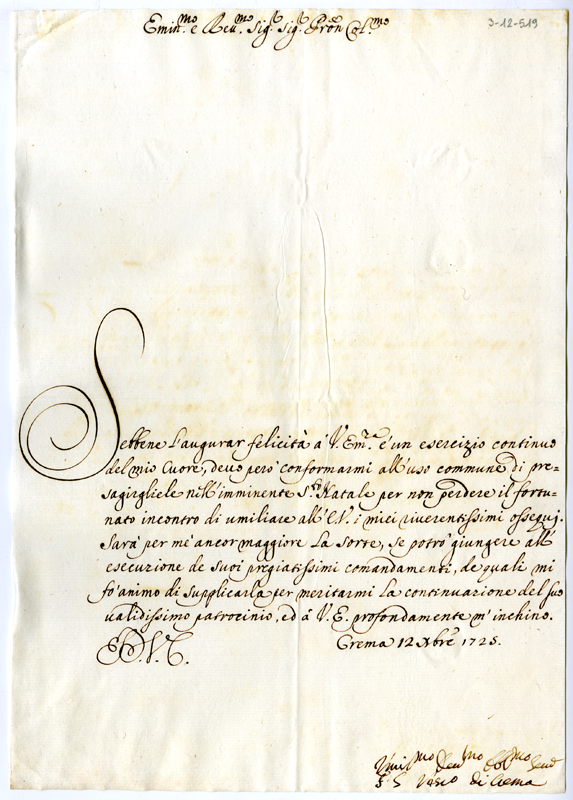 3-12-519
Emin.mo e Rev.mo Sig.r Sig.r Pron Col.mo
Sebbene l'augurar felicità à V. Em.za è un esercizio continuo
del mio Cuore, devo però conformarmi all'uso commune di pre=
sagirgliele nell'imminente S.to Natale per non perdere il fortu=
nato incontro di umiliare all'E.V. i miei riverentissimi ossequj.
Sarà per mè ancor maggiore la sorte, se potrò giungere all'
esecuzione de suoi pregiatissimi comandamenti, de quali mi
fò animo di supplicarla per meritarmi la continuazione del suo
validissimo patrocinio, ed à V. E. profondamente m'inchino.
Crema 12 Xbre 1725.
Umil.mo Dev.mo Obl.mo Serv
F. S. Vesco di Crema